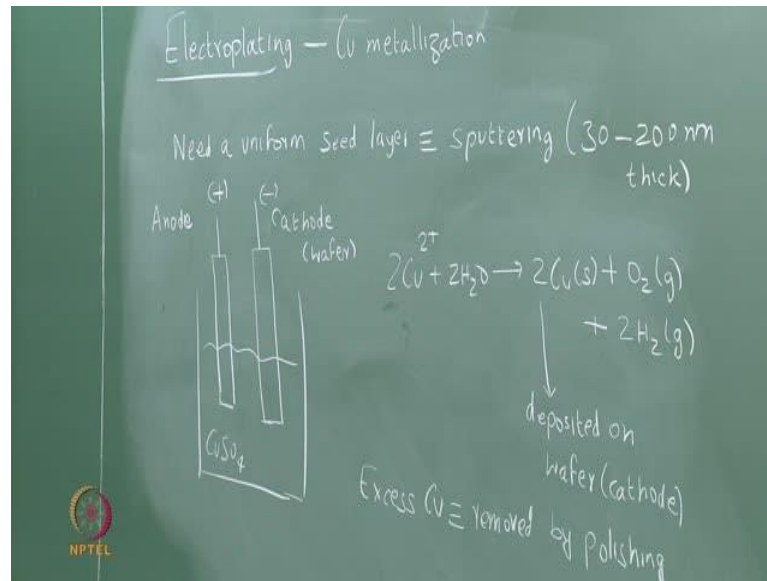 Electroplating – Cu metallization
Need a uniform seed layer ≡ sputtering (30–200 nm
thick)
(+) (-)
Anode Cathode
(wafer)
2Cu²⁺ + 2H₂O → 2Cu(s) + O₂(g)
+ 2H₂(g)
CuSO₄
deposited on
wafer (cathode)
Excess Cu ≡ removed by polishing
NPTEL